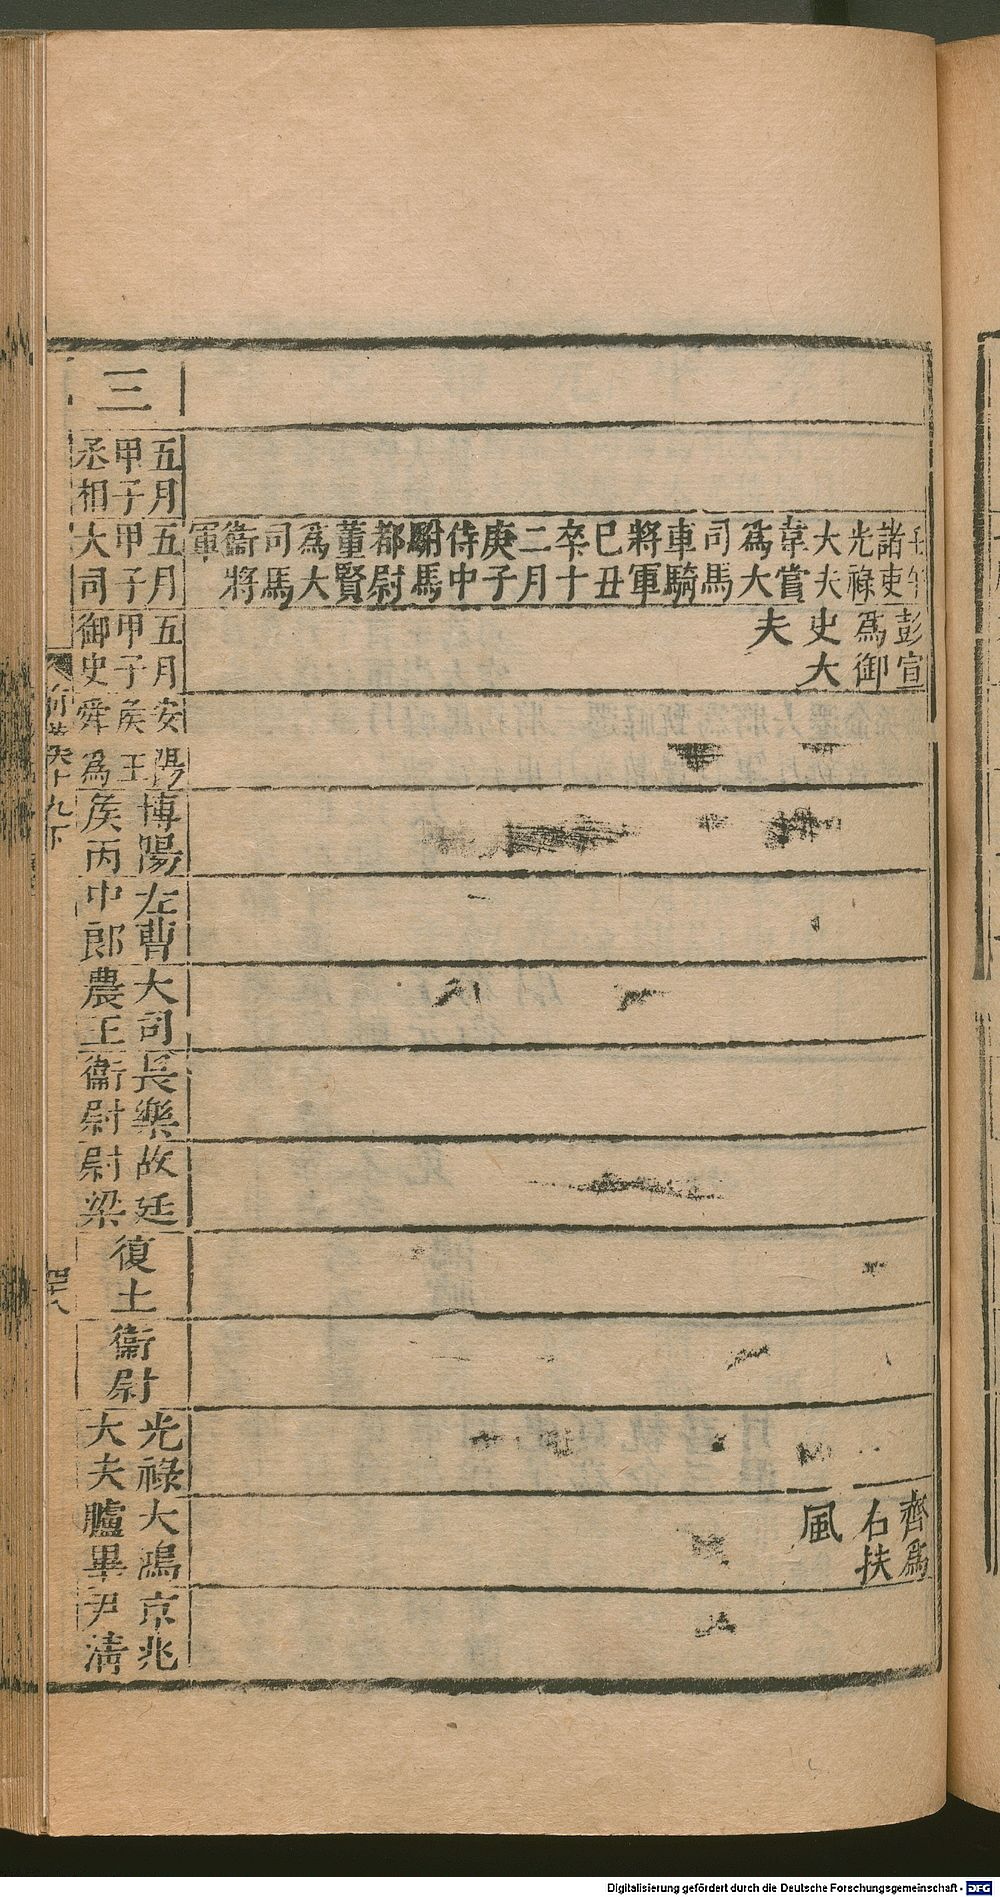 壬午
諸吏
光祿
大夫
韋賞
爲大
司馬
車騎
將軍
巳丑
卒十
二月
庚子
侍中
駙馬
都尉
董賢
爲大
司馬
衞將
軍
彭宣
爲御
史大
夫
齊爲
右扶
風
三
五月
甲子
丞相
五月
甲子
大司
五月
甲子
御史
安陽
矦王
舜爲
博陽
矦丙
左曹
中郎
大司
農王
長樂
衞尉
故廷
尉梁
復土
衞尉
光祿
大夫
大鴻
臚畢
京兆
尹淸
前漢卷十九下
四十八
Digitalisierung gefördert durch die Deutsche Forschungsgemeinschaft - DFG